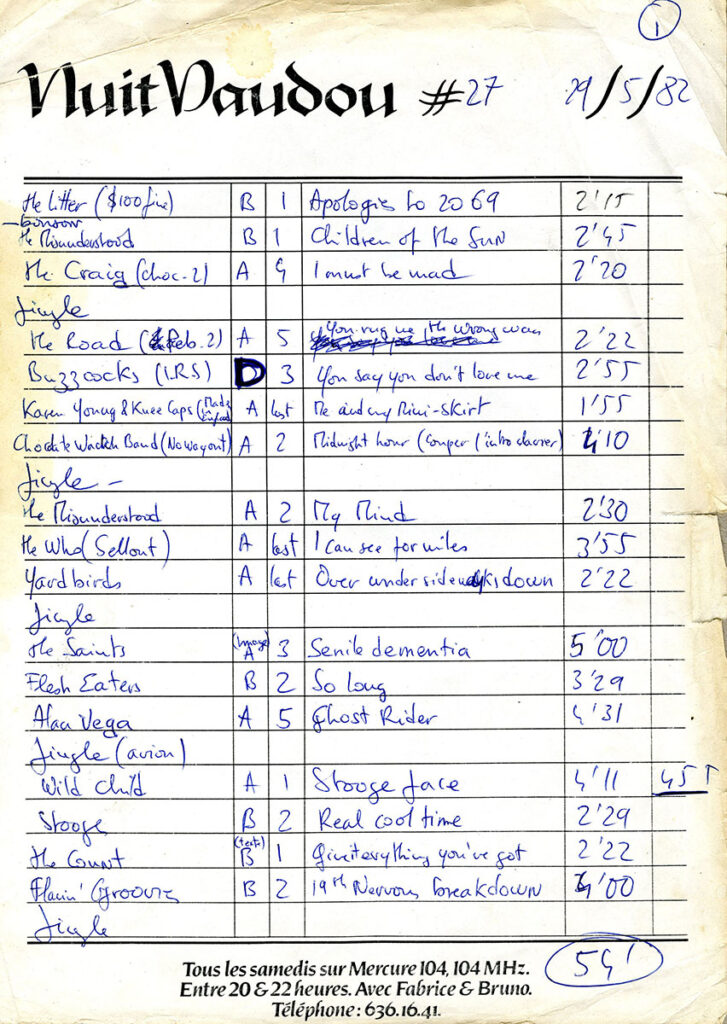 1
Nuit Vaudou #27 29/5/82
The Litter ($100 fine) B 1 Apologies to 2069 2'15
bonsoir
The Misunderstood B 1 Children of the Sun 2'45
The Craig (choc. 2) A 4 I must be mad 2'20
Jingle
The Road (Peb. 2) A 5 You rub me the wrong way 2'22
Buzzcocks (I.R.S) D 3 You say you don't love me 2'55
Karen Young & Knee Caps (Made in England) A last Me and my Mini-skirt 1'55
Chocolate Watch Band (No way out) A 2 Midnight hour (couper l'intro 4'10
Jingle –
The Misunderstood A 2 My Mind 2'30
The Who (Sellout) A last I can see for miles 3'55
Yardbirds A last Over under sideways down 2'22
Jingle
The Saints (Image) A 3 Senile dementia 5'00
Flesh Eaters B 2 So long 3'29
Alan Vega A 5 Ghost Rider 4'31
Jingle (avion)
Wild Child A 1 Stooge face 4'11 45T
Stooge B 2 Real cool time 2'29
The Count B 1 Give it everything you've got 2'22
Flamin' Groovies B 2 19th Nervous breakdown 4'00
Jingle
54'
Tous les samedis sur Mercure 104, 104 MHz.
Entre 20 & 22 heures. Avec Fabrice & Bruno.
Téléphone: 636.16.41.